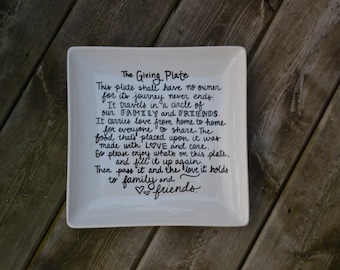 The Giving Plate
This plate shall have no owner
for its journey never ends
It travels in a circle of
our FAMILY and FRIENDS.
It carries love from home to home
for everyone to share. The
food that's placed upon it was
made with LOVE and care.
So please enjoy whats on this plate,
and fill it up again.
Then pass it and the love it holds
to family and
friends.